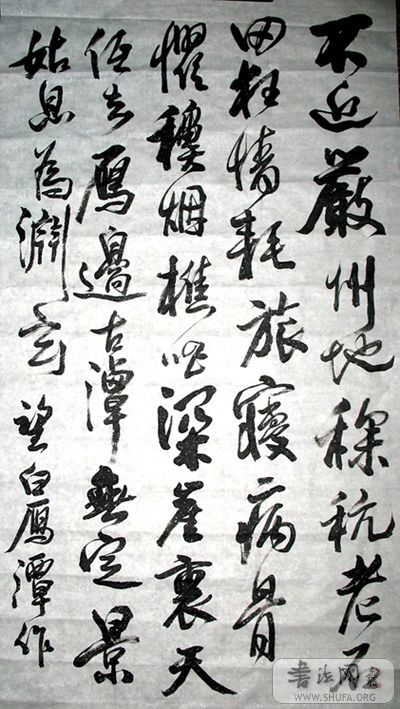 不近嚴州地秔老
田情耗旅寢病骨
懼烟樵深崖裏天
低去鴈邊古潭無定景
姑息為淵玄 望白鴈潭作
書法网
WWW.SHUFA.ORG